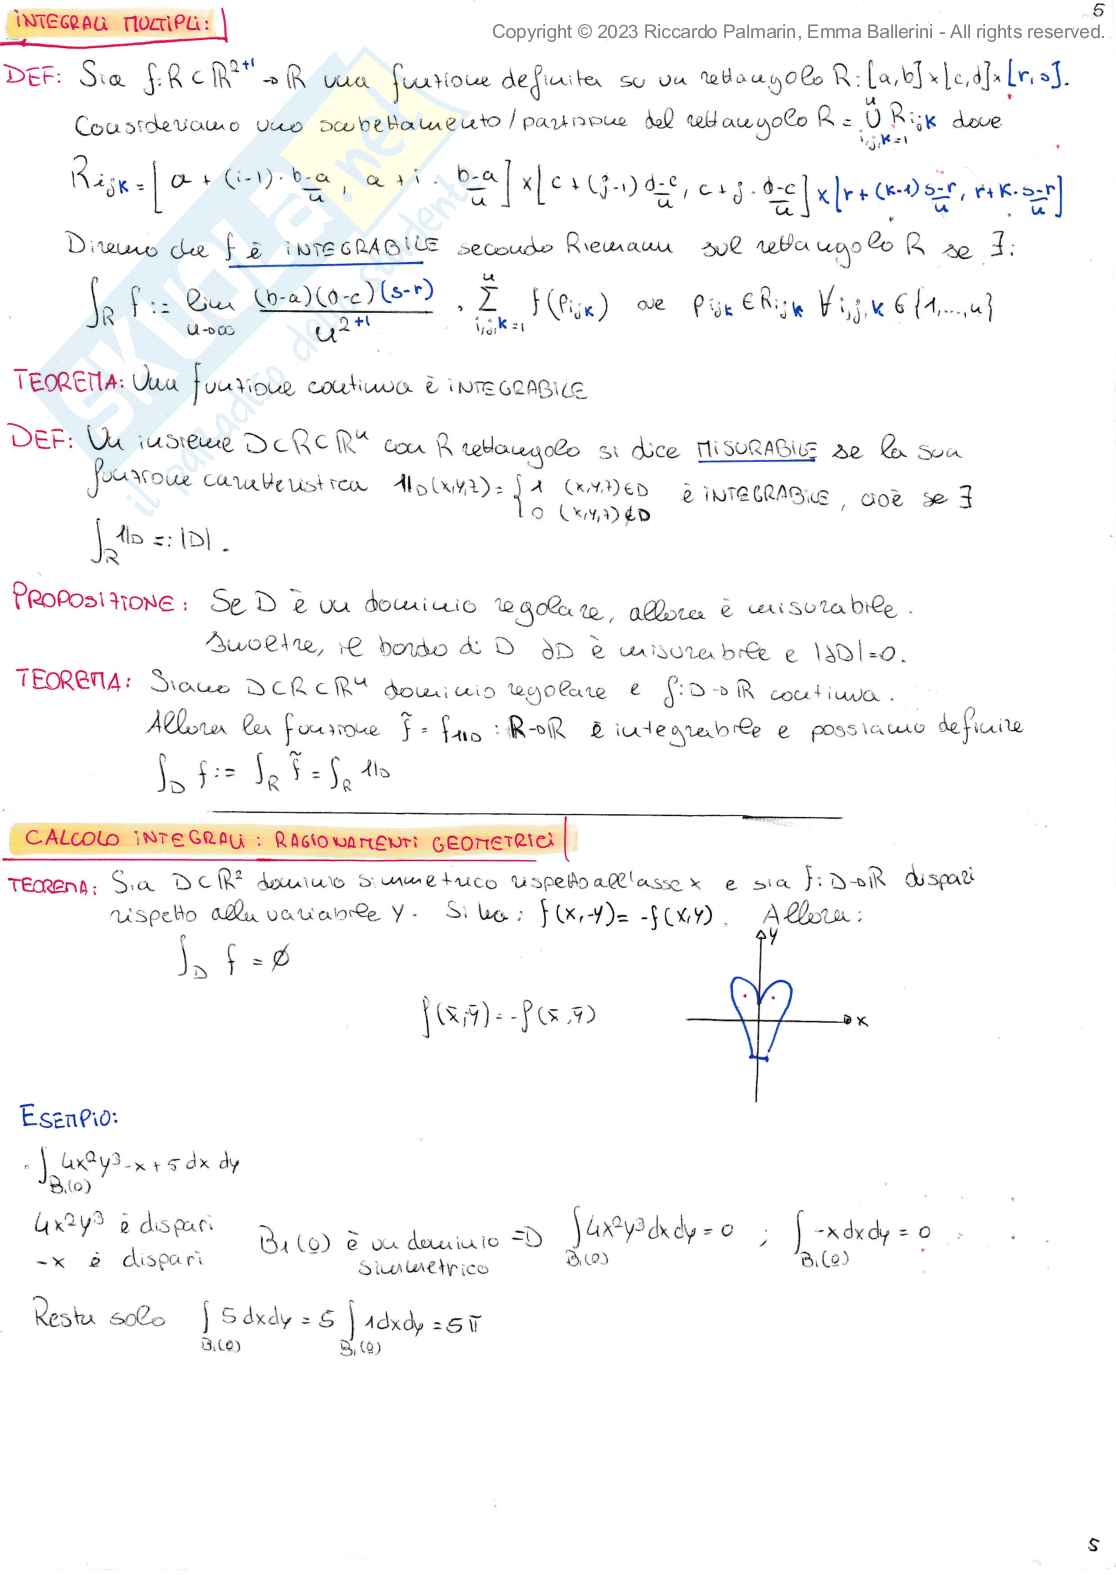 5
Copyright © 2023 Riccardo Palmarin, Emma Ballerini - All rights reserved.
INTEGRALI MULTIPLI:
DEF: Sia f: R ⊂ ℝ²⁺¹ → ℝ una funzione definita su un rettangolo R: [a,b]×[c,d]×[r,s].
Consideriamo uno scubettamento/partizione del rettangolo R = ⋃ⁿ_{i,j,k=1} R_{ijk} dove
R_{ijk} = [a + (i-1)· (b-a)/n, a + i · (b-a)/n] × [c + (j-1) (d-c)/n, c + j · (d-c)/n] × [r + (k-1) (s-r)/n, r + k · (s-r)/n]
Diremo che f è INTEGRABILE secondo Riemann sul rettangolo R se ∃:
∫_R f := lim_{n→∞} (b-a)(d-c)(s-r)/n²⁺¹ · Σⁿ_{i,j,k=1} f(P_{ijk}) ove P_{ijk} ∈ R_{ijk} ∀i,j,k ∈ {1,...,n}
TEOREMA: Una funzione continua è INTEGRABILE
DEF: Un insieme D ⊂ R ⊂ ℝⁿ con R rettangolo si dice MISURABILE se la sua
funzione caratteristica 1_D(x,y,z) = { 1 (x,y,z) ∈ D è INTEGRABILE, cioè se ∃
0 (x,y,z) ∉ D
∫_R 1_D =: |D|.
PROPOSIZIONE: Se D è un dominio regolare, allora è misurabile.
Inoltre, il bordo di D ∂D è misurabile e |∂D|=0.
TEOREMA: Siano D ⊂ R ⊂ ℝⁿ dominio regolare e f: D → ℝ continua.
Allora la funzione f̃ = f1_D : R → ℝ è integrabile e possiamo definire
∫_D f := ∫_R f̃ = ∫_R 1_D
CALCOLO INTEGRALI: RAGIONAMENTI GEOMETRICI
TEOREMA: Sia D ⊂ ℝ² dominio simmetrico rispetto all'asse x e sia f: D → ℝ dispari
rispetto alla variabile y. Si ha: f(x,-y) = -f(x,y). Allora:
∫_D f = ∅
y
f(x̄,ȳ) = -f(x̄,ȳ)
x
ESEMPIO:
· ∫_{B₁(0)} 4x²y³ - x + 5 dx dy
4x²y³ è dispari
-x è dispari
B₁(0) è un dominio simmetrico ⇒ ∫_{B₁(0)} 4x²y³ dxdy = 0 ; ∫_{B₁(0)} -x dxdy = 0
Resta solo ∫_{B₁(0)} 5 dxdy = 5 ∫_{B₁(0)} 1 dxdy = 5π
5
SKUOLA.net
il paradiso dello studente